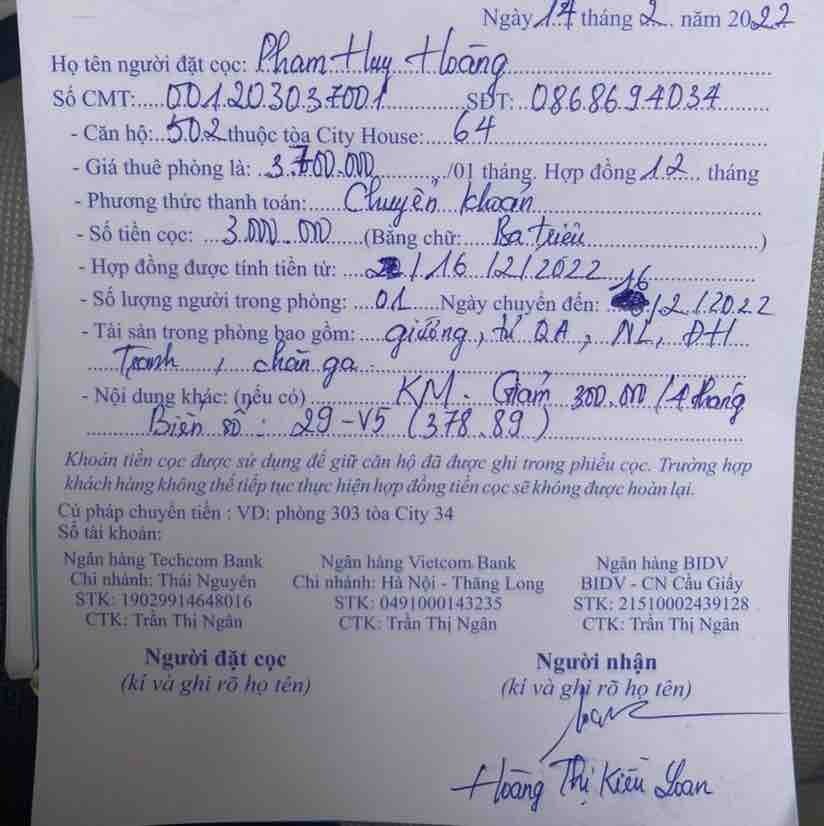 Ngày 14 tháng 2 năm 2022
Họ tên người đặt cọc: Phạm Huy Hoàng
Số CMT: 001203037001 SĐT: 0868694034
- Căn hộ: 502 thuộc tòa City House: 64
- Giá thuê phòng là: 3.700.000 /01 tháng. Hợp đồng 12 tháng
- Phương thức thanh toán: Chuyển khoản
- Số tiền cọc: 3.000.000 (Bằng chữ: Ba triệu)
- Hợp đồng được tính tiền từ: 16/2/2022
- Số lượng người trong phòng: 01 Ngày chuyển đến: 16/2/2022
- Tài sản trong phòng bao gồm: giường, tủ QA, NL, ĐH
Tranh, chăn ga
- Nội dung khác: (nếu có) KM. Giảm 300.000/4 tháng
Biển số: 29-V5 (378.89)
Khoản tiền cọc được sử dụng để giữ căn hộ đã được ghi trong phiếu cọc. Trường hợp
khách hàng không thể tiếp tục thực hiện hợp đồng tiền cọc sẽ không được hoàn lại.
Cú pháp chuyển tiền : VD: phòng 303 tòa City 34
Số tài khoản:
Ngân hàng Techcom Bank Ngân hàng Vietcom Bank Ngân hàng BIDV
Chi nhánh: Thái Nguyên Chi nhánh: Hà Nội - Thăng Long BIDV - CN Cầu Giấy
STK: 19029914648016 STK: 0491000143235 STK: 21510002439128
CTK: Trần Thị Ngân CTK: Trần Thị Ngân CTK: Trần Thị Ngân
Người đặt cọc Người nhận
(kí và ghi rõ họ tên) (kí và ghi rõ họ tên)
Hoàng Thị Kiều Loan